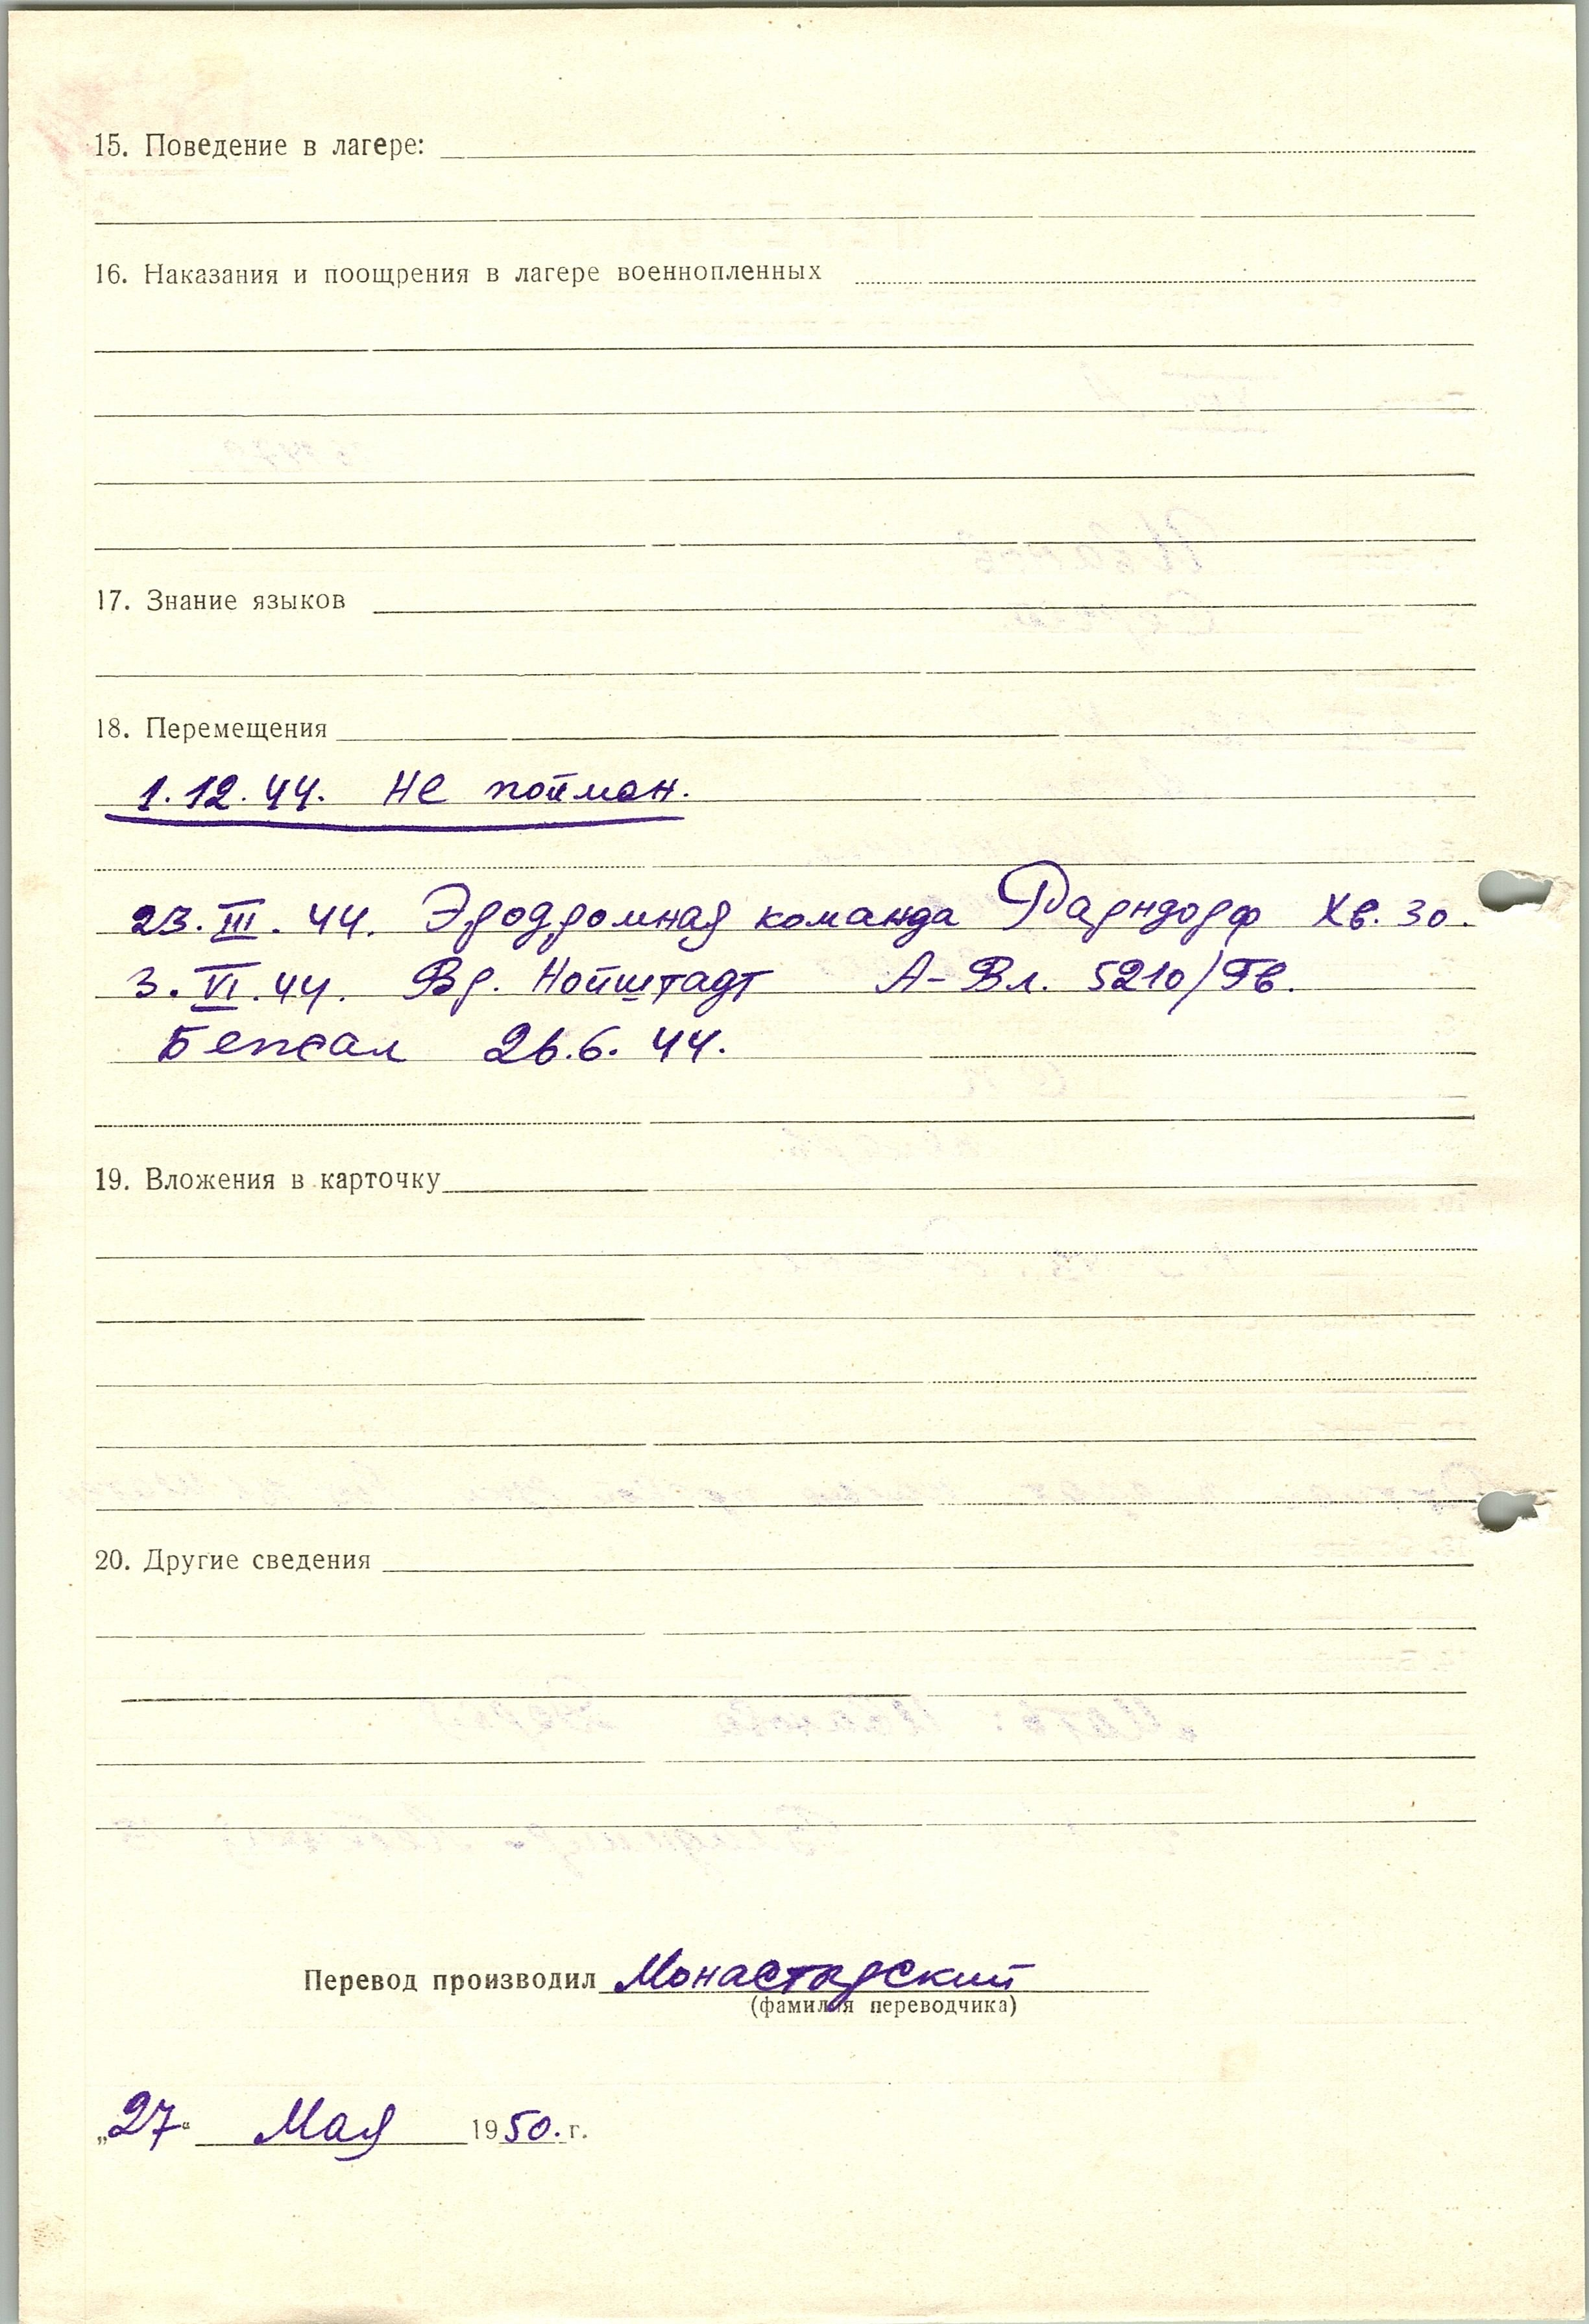 15. Поведение в лагере:
16. Наказания и поощрения в лагере военнопленных
17. Знание языков
18. Перемещения
1.12.44. Не пойман.
23. III. 44. Эродромная команда Парндорф Хв. 30.
3. VI. 44. Вр. Нойштадт А-Вл. 5210/Гв.
Бежал 26.6. 44.
19. Вложения в карточку
20. Другие сведения
Перевод производил Монастырский
(фамилия переводчика)
„27“ Мая 1950. г.